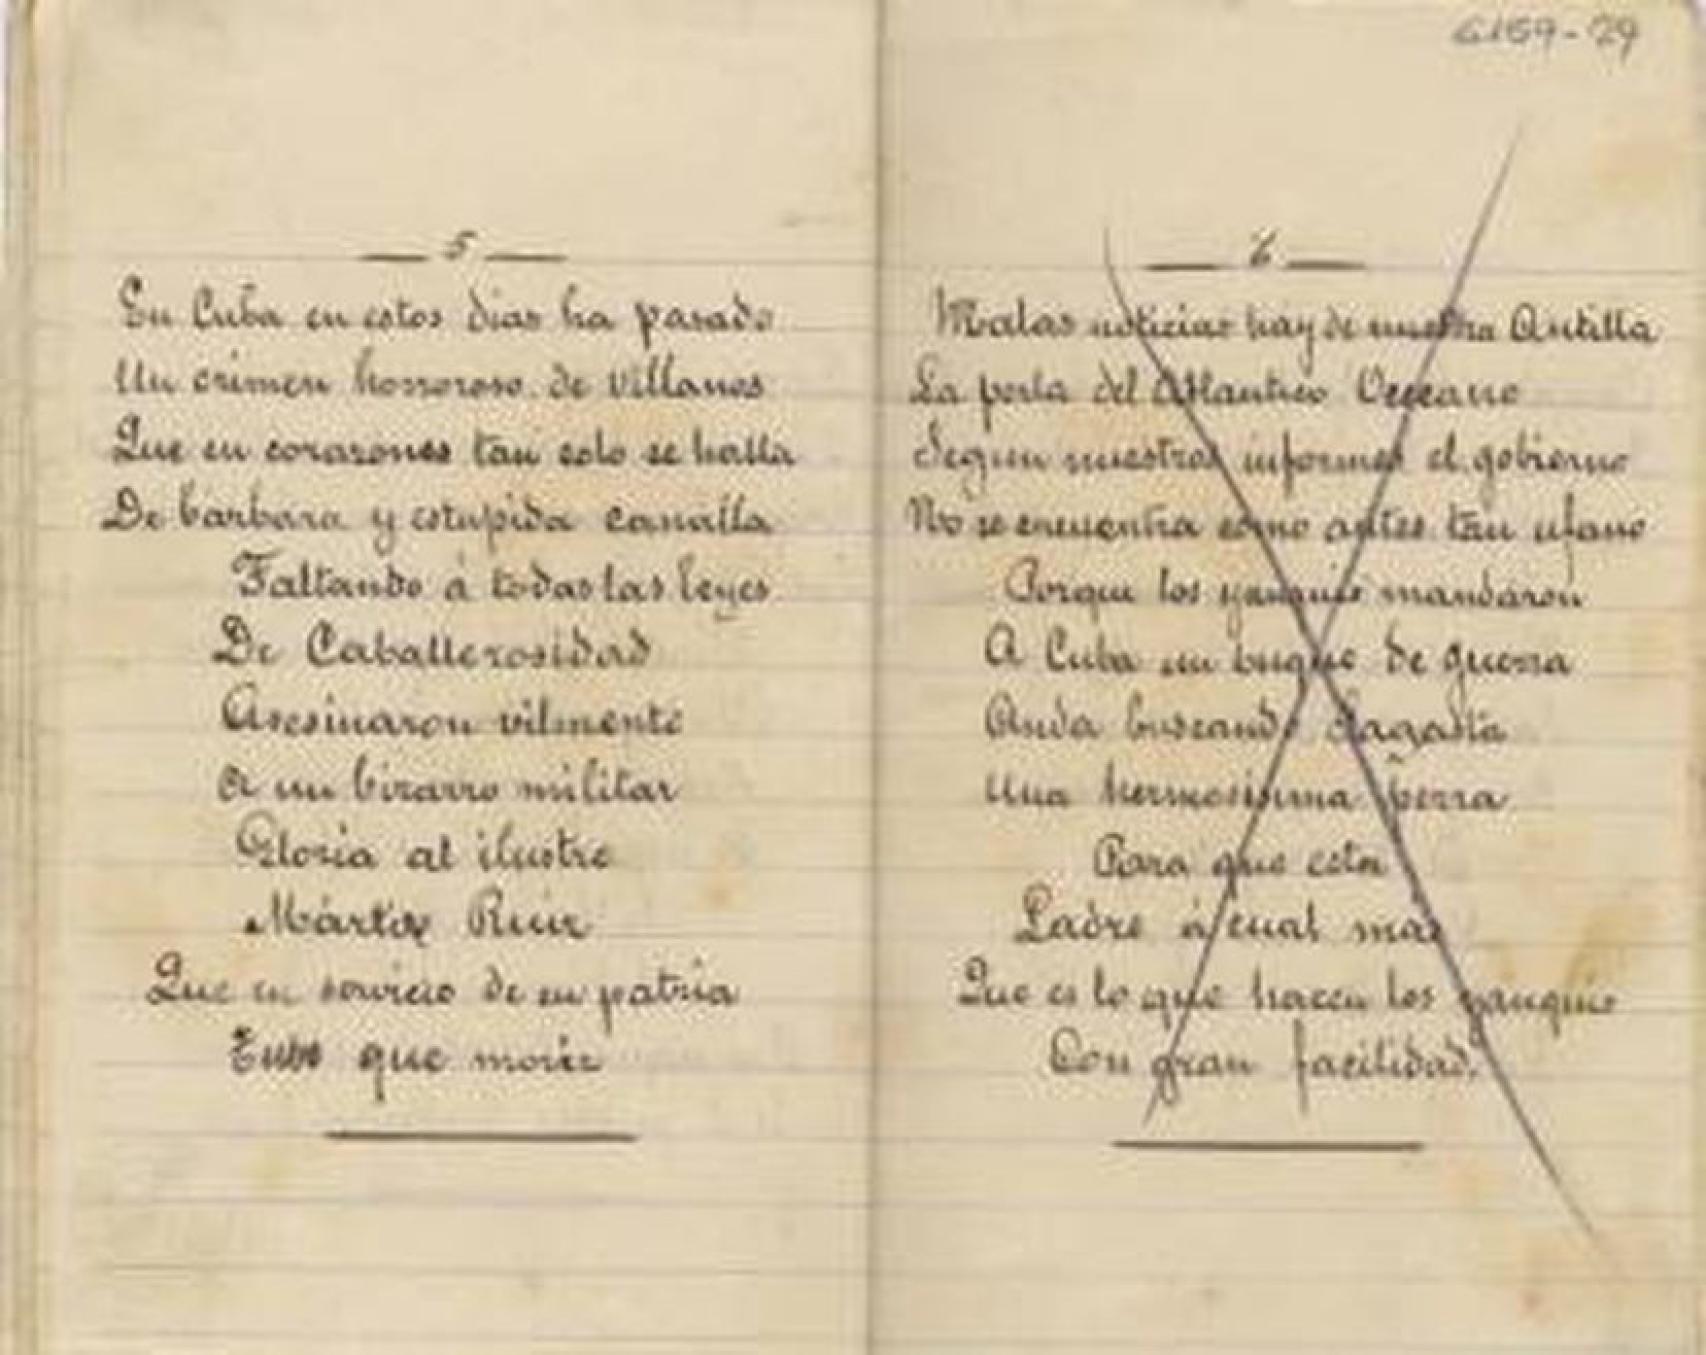 6159-29
— 5 —
En Cuba en estos dias ha pasado
Un crimen horroroso de villanos
Que en corazones tan solo se halla
De barbara y estupida canalla
Faltando á todas las leyes
De Caballerosidad
Asesinaron vilmente
A un bizarro militar
Gloria al ilustre
Mártir Ruiz
Que en servicio de su patria
Tubo que morir
— 6 —
Malas noticias hay de nuestra Antilla
La perla del Atlantico Occeano
Segun nuestros informes el gobierno
No se encuentra como antes tan ufano
Porque los yanquis mandaron
A Cuba un buque de guerra
Anda buscando Sagasta
Una hermosisima perra
Para que esta
Ladre á cual mas
Que es lo que hacen los yanquis
Con gran facilidad.